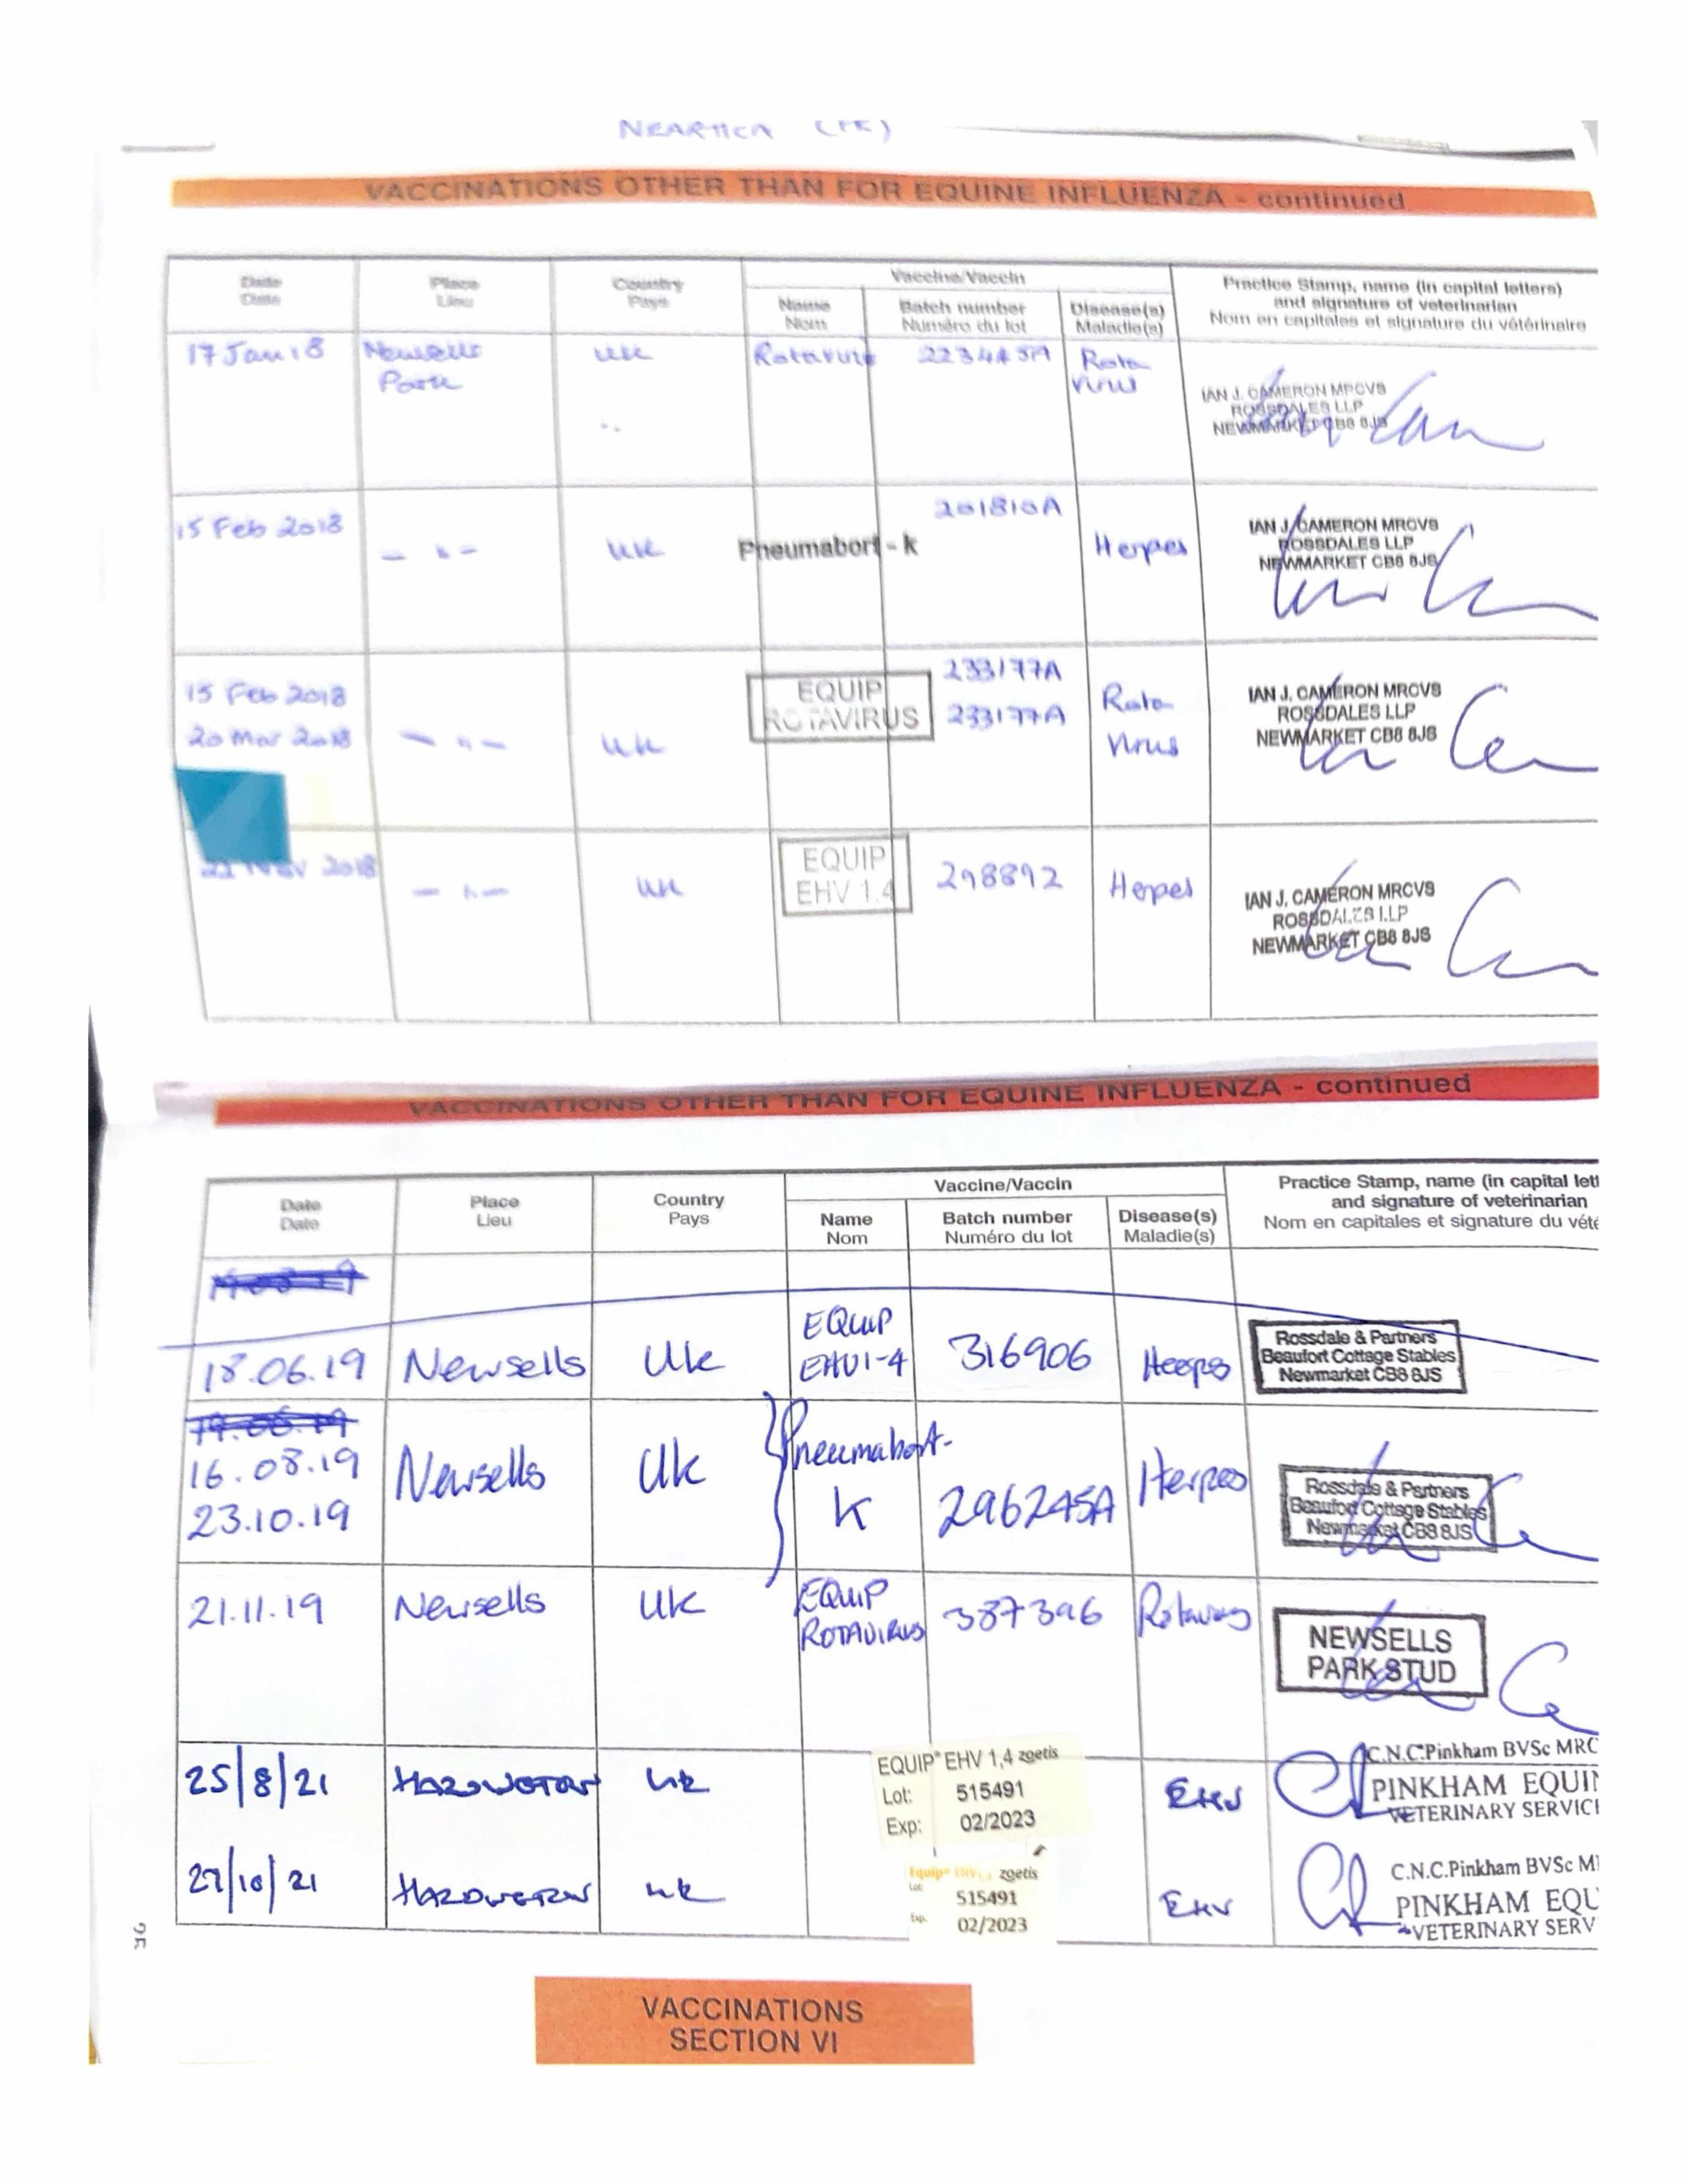 NEARTICA (FR)
VACCINATIONS OTHER THAN FOR EQUINE INFLUENZA - continued
Date
Date
Place
Lieu
Country
Pays
Vaccine/Vaccin
Name
Nom
Batch number
Numéro du lot
Disease(s)
Maladie(s)
Practice Stamp, name (in capital letters)
and signature of veterinarian
Nom en capitales et signature du vétérinaire
17 Jan 18
Newsells
Park
UK
223445A
Rota
virus
IAN J. CAMERON MRCVS
ROSSDALES LLP
NEWMARKET CB8 8JS
15 Feb 2018
- " -
UK
Pneumabort - k
201810A
Herpes
IAN J. CAMERON MRCVS
ROSSDALES LLP
NEWMARKET CB8 8JS
15 Feb 2018
20 Mar 2018
- " -
UK
EQUIP
ROTAVIRUS
233177A
233177A
Rota
Virus
IAN J. CAMERON MRCVS
ROSSDALES LLP
NEWMARKET CB8 8JS
Nov 2018
- " -
UK
EQUIP
EHV 1.4
298892
Herpes
IAN J. CAMERON MRCVS
ROSSDALES LLP
NEWMARKET CB8 8JS
VACCINATIONS OTHER THAN FOR EQUINE INFLUENZA - continued
Date
Date
Place
Lieu
Country
Pays
Vaccine/Vaccin
Name
Nom
Batch number
Numéro du lot
Disease(s)
Maladie(s)
Practice Stamp, name (in capital lett
and signature of veterinarian
Nom en capitales et signature du vété
18.06.19
Newsells
Uk
EQUIP
EHV1-4
316906
Herpes
Rossdale & Partners
Beaufort Cottage Stables
Newmarket CB8 8JS
16.08.19
23.10.19
Newsells
Uk
Pneumabort-
K
296245A
Herpes
Rossdale & Partners
Beaufort Cottage Stables
Newmarket CB8 8JS
21.11.19
Newsells
Uk
EQUIP
ROTAVIRUS
387396
Rotavirus
NEWSELLS
PARK STUD
25/8/21
UK
EQUIP® EHV 1,4 zoetis
Lot: 515491
Exp: 02/2023
EHV
C.N.C.Pinkham BVSc MRC
PINKHAM EQUIN
VETERINARY SERVICE
27/10/21
UK
Equip® EHV 1,4 zoetis
Lot 515491
Exp. 02/2023
EHV
C.N.C.Pinkham BVSc M
PINKHAM EQU
VETERINARY SERV
25
VACCINATIONS
SECTION VI